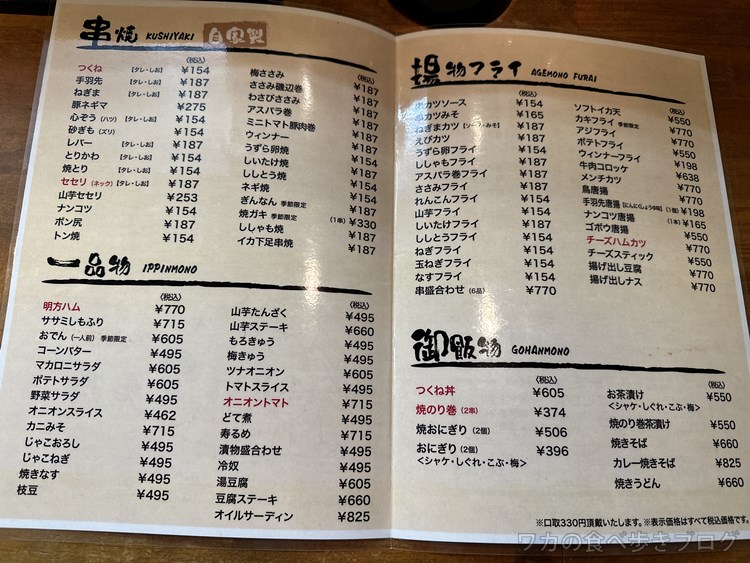 串焼 KUSHIYAKI 自家製
(税込)
つくね 【タレ・しお】 ¥154
手羽先 【タレ・しお】 ¥187
ねぎま 【タレ・しお】 ¥187
豚ネギマ ¥275
心ぞう (ハツ) 【タレ・しお】 ¥154
砂ぎも (ズリ) ¥154
レバー 【タレ・しお】 ¥187
とりかわ 【タレ・しお】 ¥154
焼とり 【タレ・しお】 ¥154
セセリ (ネック) 【タレ・しお】 ¥187
山芋セセリ ¥253
ナンコツ ¥154
ボン尻 ¥187
トン焼 ¥154
(税込)
梅ささみ ¥187
ささみ磯辺巻 ¥187
わさびささみ ¥187
アスパラ巻 ¥187
ミニトマト豚肉巻 ¥187
ウィンナー ¥187
うずら卵焼 ¥187
しいたけ焼 ¥154
ししとう焼 ¥187
ネギ焼 ¥154
ぎんなん 季節限定 ¥187
焼ガキ 季節限定 (1串) ¥330
ししゃも焼 ¥187
イカ下足串焼 ¥187
一品物 IPPINMONO
(税込)
明方ハム ¥770
ササミしもふり ¥715
おでん (一人前) 季節限定 ¥605
コーンバター ¥495
マカロニサラダ ¥495
ポテトサラダ ¥605
野菜サラダ ¥495
オニオンスライス ¥462
カニみそ ¥715
じゃこおろし ¥495
じゃこねぎ ¥495
焼きなす ¥495
枝豆 ¥495
(税込)
山芋たんざく ¥495
山芋ステーキ ¥660
もろきゅう ¥495
梅きゅう ¥495
ツナオニオン ¥605
トマトスライス ¥495
オニオントマト ¥715
どて煮 ¥495
寿るめ ¥715
漬物盛合わせ ¥495
冷奴 ¥495
湯豆腐 ¥605
豆腐ステーキ ¥660
オイルサーディン ¥825
揚物フライ AGEMONO FURAI
(税込)
串カツソース ¥154
串カツみそ ¥165
ねぎまカツ 【ソース・みそ】 ¥187
えびカツ ¥187
うずら卵フライ ¥154
ししゃもフライ ¥187
アスパラ巻フライ ¥187
ささみフライ ¥187
れんこんフライ ¥154
山芋フライ ¥154
しいたけフライ ¥187
ししとうフライ ¥154
ねぎフライ ¥154
玉ねぎフライ ¥154
なすフライ ¥154
串盛合わせ (6品) ¥770
(税込)
ソフトイカ天 ¥550
カキフライ 季節限定 ¥770
アジフライ ¥770
ポテトフライ ¥550
ウィンナーフライ ¥198
牛肉コロッケ ¥638
メンチカツ ¥770
鳥唐揚 ¥770
手羽先唐揚 【にんにくしょうゆ味】 (1個) ¥198
ナンコツ唐揚 (1本) ¥165
ゴボウ唐揚 ¥550
チーズハムカツ ¥770
チーズスティック ¥550
揚げ出し豆腐 ¥770
揚げ出しナス ¥770
御飯物 GOHANMONO
(税込)
つくね丼 ¥605
焼のり巻 (2串) ¥374
焼おにぎり (2個) ¥506
おにぎり (2個) ¥396
<シャケ・しぐれ・こぶ・梅>
(税込)
お茶漬け ¥550
<シャケ・しぐれ・こぶ・梅>
焼のり巻茶漬け ¥550
焼きそば ¥660
カレー焼きそば ¥825
焼きうどん ¥660
※口取330円頂戴いたします。※表示価格はすべて税込価格です。
ワカの食べ歩きブログ